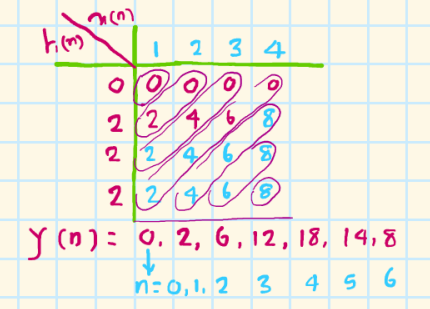 x(n)
h(n) 1 2 3 4
0 0 0 0 0
2 2 4 6 8
2 2 4 6 8
2 2 4 6 8
y(n) = 0, 2, 6, 12, 18, 14, 8
↓
n=0, 1, 2 3 4 5 6